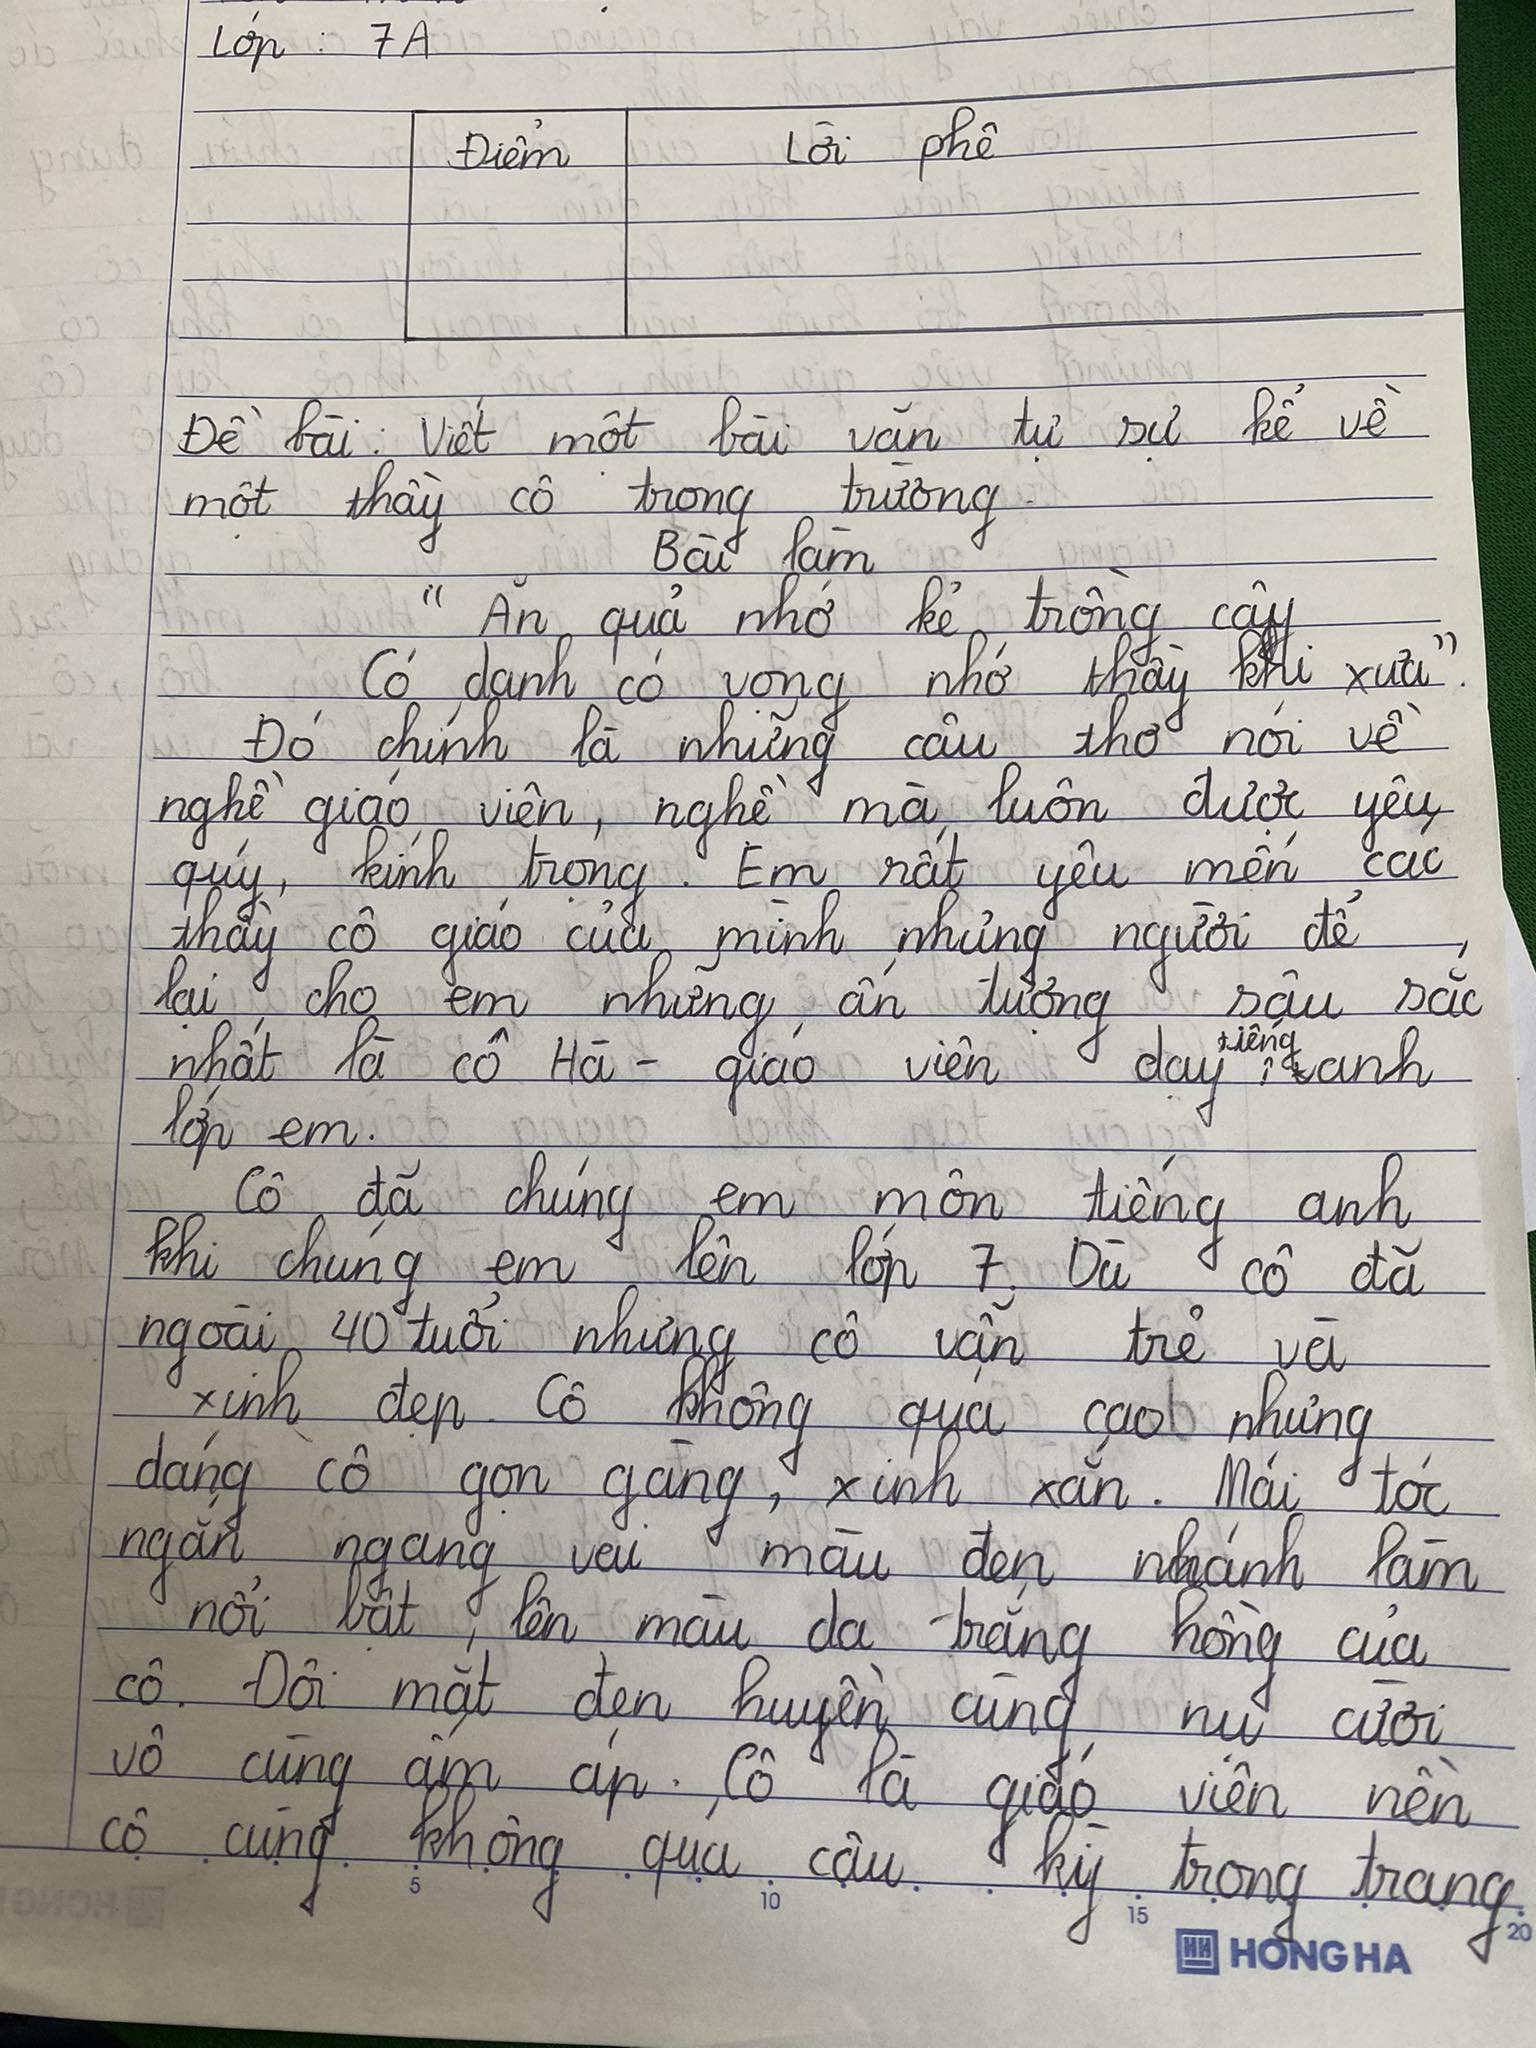 Lớp : 7A
Điểm
Lời phê
Đề bài: Viết một bài văn tự sự kể về
một thầy cô trong trường.
Bài làm
" Ăn quả nhớ kẻ trồng cây
Có danh có vọng nhớ thầy khi xưa".
Đó chính là những câu thơ nói về
nghề giáo viên, nghề mà luôn được yêu
quý, kính trọng. Em rất yêu mến các
thầy cô giáo của mình nhưng người để
lại cho em những ấn tượng sâu sắc
nhất là cô Hà - giáo viên dạy tiếng anh
lớp em.
Cô đã chúng em môn tiếng anh
khi chúng em lên lớp 7. Dù cô đã
ngoài 40 tuổi nhưng cô vẫn trẻ và
xinh đẹp. Cô không quá cao nhưng
dáng cô gọn gàng, xinh xắn. Mái tóc
ngắn ngang vai màu đen nhánh làm
nổi bật lên màu da trắng hồng của
cô. Đôi mắt đen huyền cùng nụ cười
vô cùng ấm áp. Cô là giáo viên nên
cô cũng không quá cầu kỳ trong trang
5 10 15 20
HONG HA